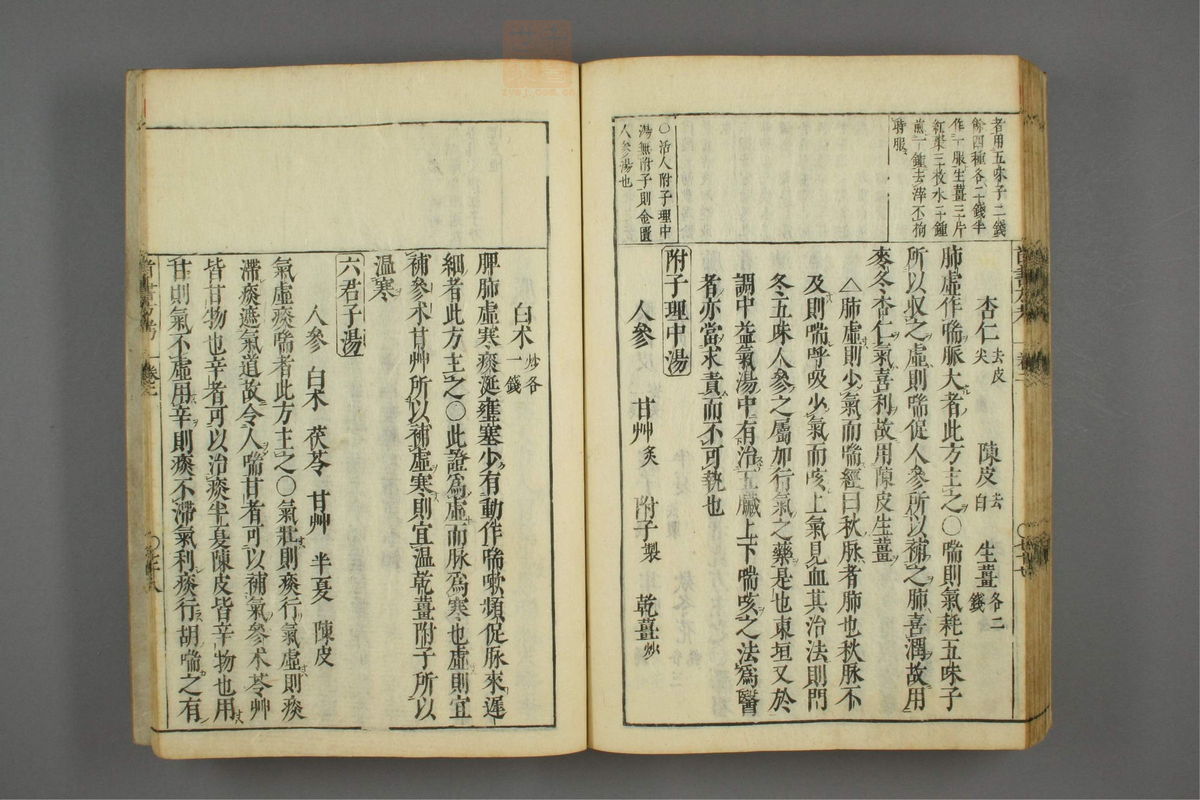 者用五味子二錢
餘四種各二錢半
作一服生薑三片
紅棗三枚水二鍾
煎一鍾去滓不拘
時服
○活人附子理中
湯無附子則金匱
人參湯也
杏仁去皮尖 陳皮去白 生薑各二錢
肺虛作喘脈大者此方主之○喘則氣耗五味子
所以收之虛則喘促人參所以補之肺喜潤故用
麥冬杏仁氣喜利故用陳皮生薑
△肺虛則少氣而喘經曰秋脉者肺也秋脉不
及則喘呼吸少氣而咳上氣見血其治法則門
冬五味人參之屬加行氣之藥是也東垣又於
調中益氣湯中有治五臟上下喘咳之法爲醫
者亦當求責而不可執也
附子理中湯
人參 甘艸炙 附子製 乾薑炒
白朮炒各一錢
脾肺虛寒痰涎壅塞少有動作喘嗽頻促脉來遲
細者此方主之○此證爲虛而脉爲寒也虛則宜
補參朮甘艸所以補虛寒則宜温乾薑附子所以
温寒
六君子湯
人參 白朮 茯苓 甘艸 半夏 陳皮
氣虛痰喘者此方主之○氣壯則痰行氣虛則痰
滯痰遮氣道故令人喘甘者可以補氣參朮苓艸
皆甘物也辛者可以治痰半夏陳皮皆辛物也用
甘則氣不虛用辛則痰不滯氣利痰行胡喘之有